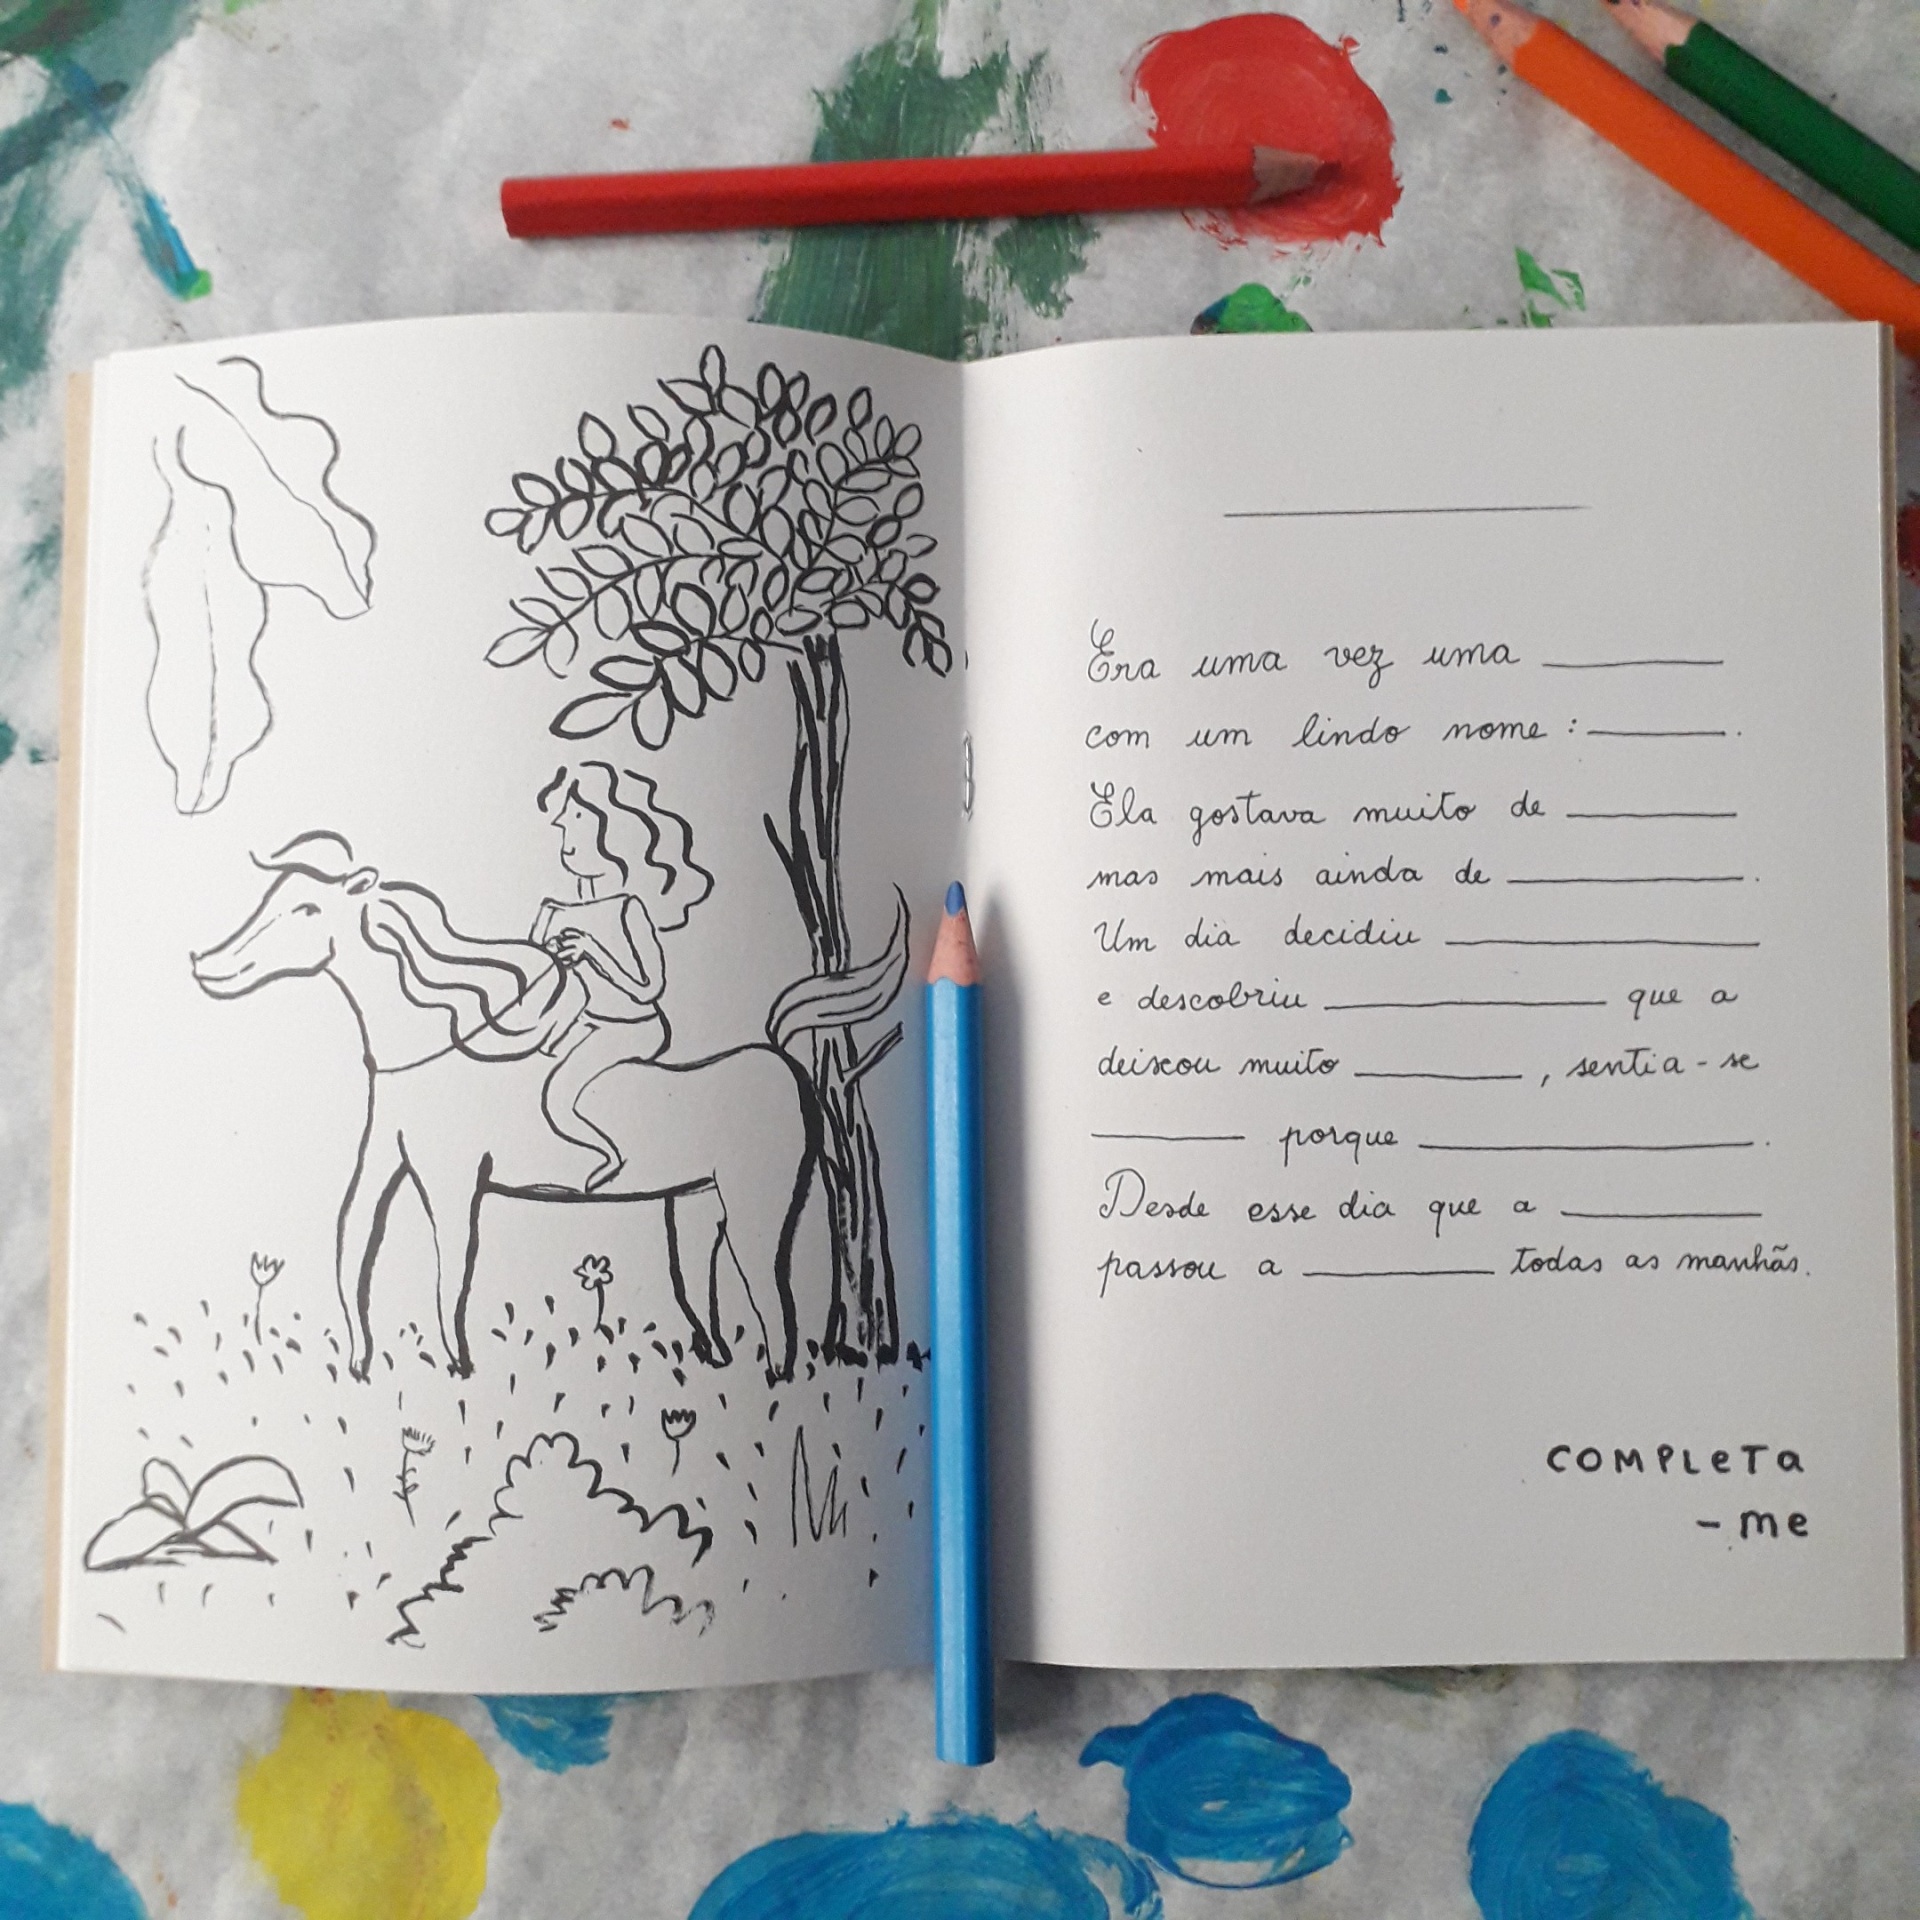 Era uma vez uma ________
com um lindo nome : ________.
Ela gostava muito de ________
mas mais ainda de ________.
Um dia decidiu ________
e descobriu ________ que a
deixou muito ________, sentia-se
________ porque ________.
Desde esse dia que a ________
passou a ________ todas as manhãs.
COMPLETA
-me